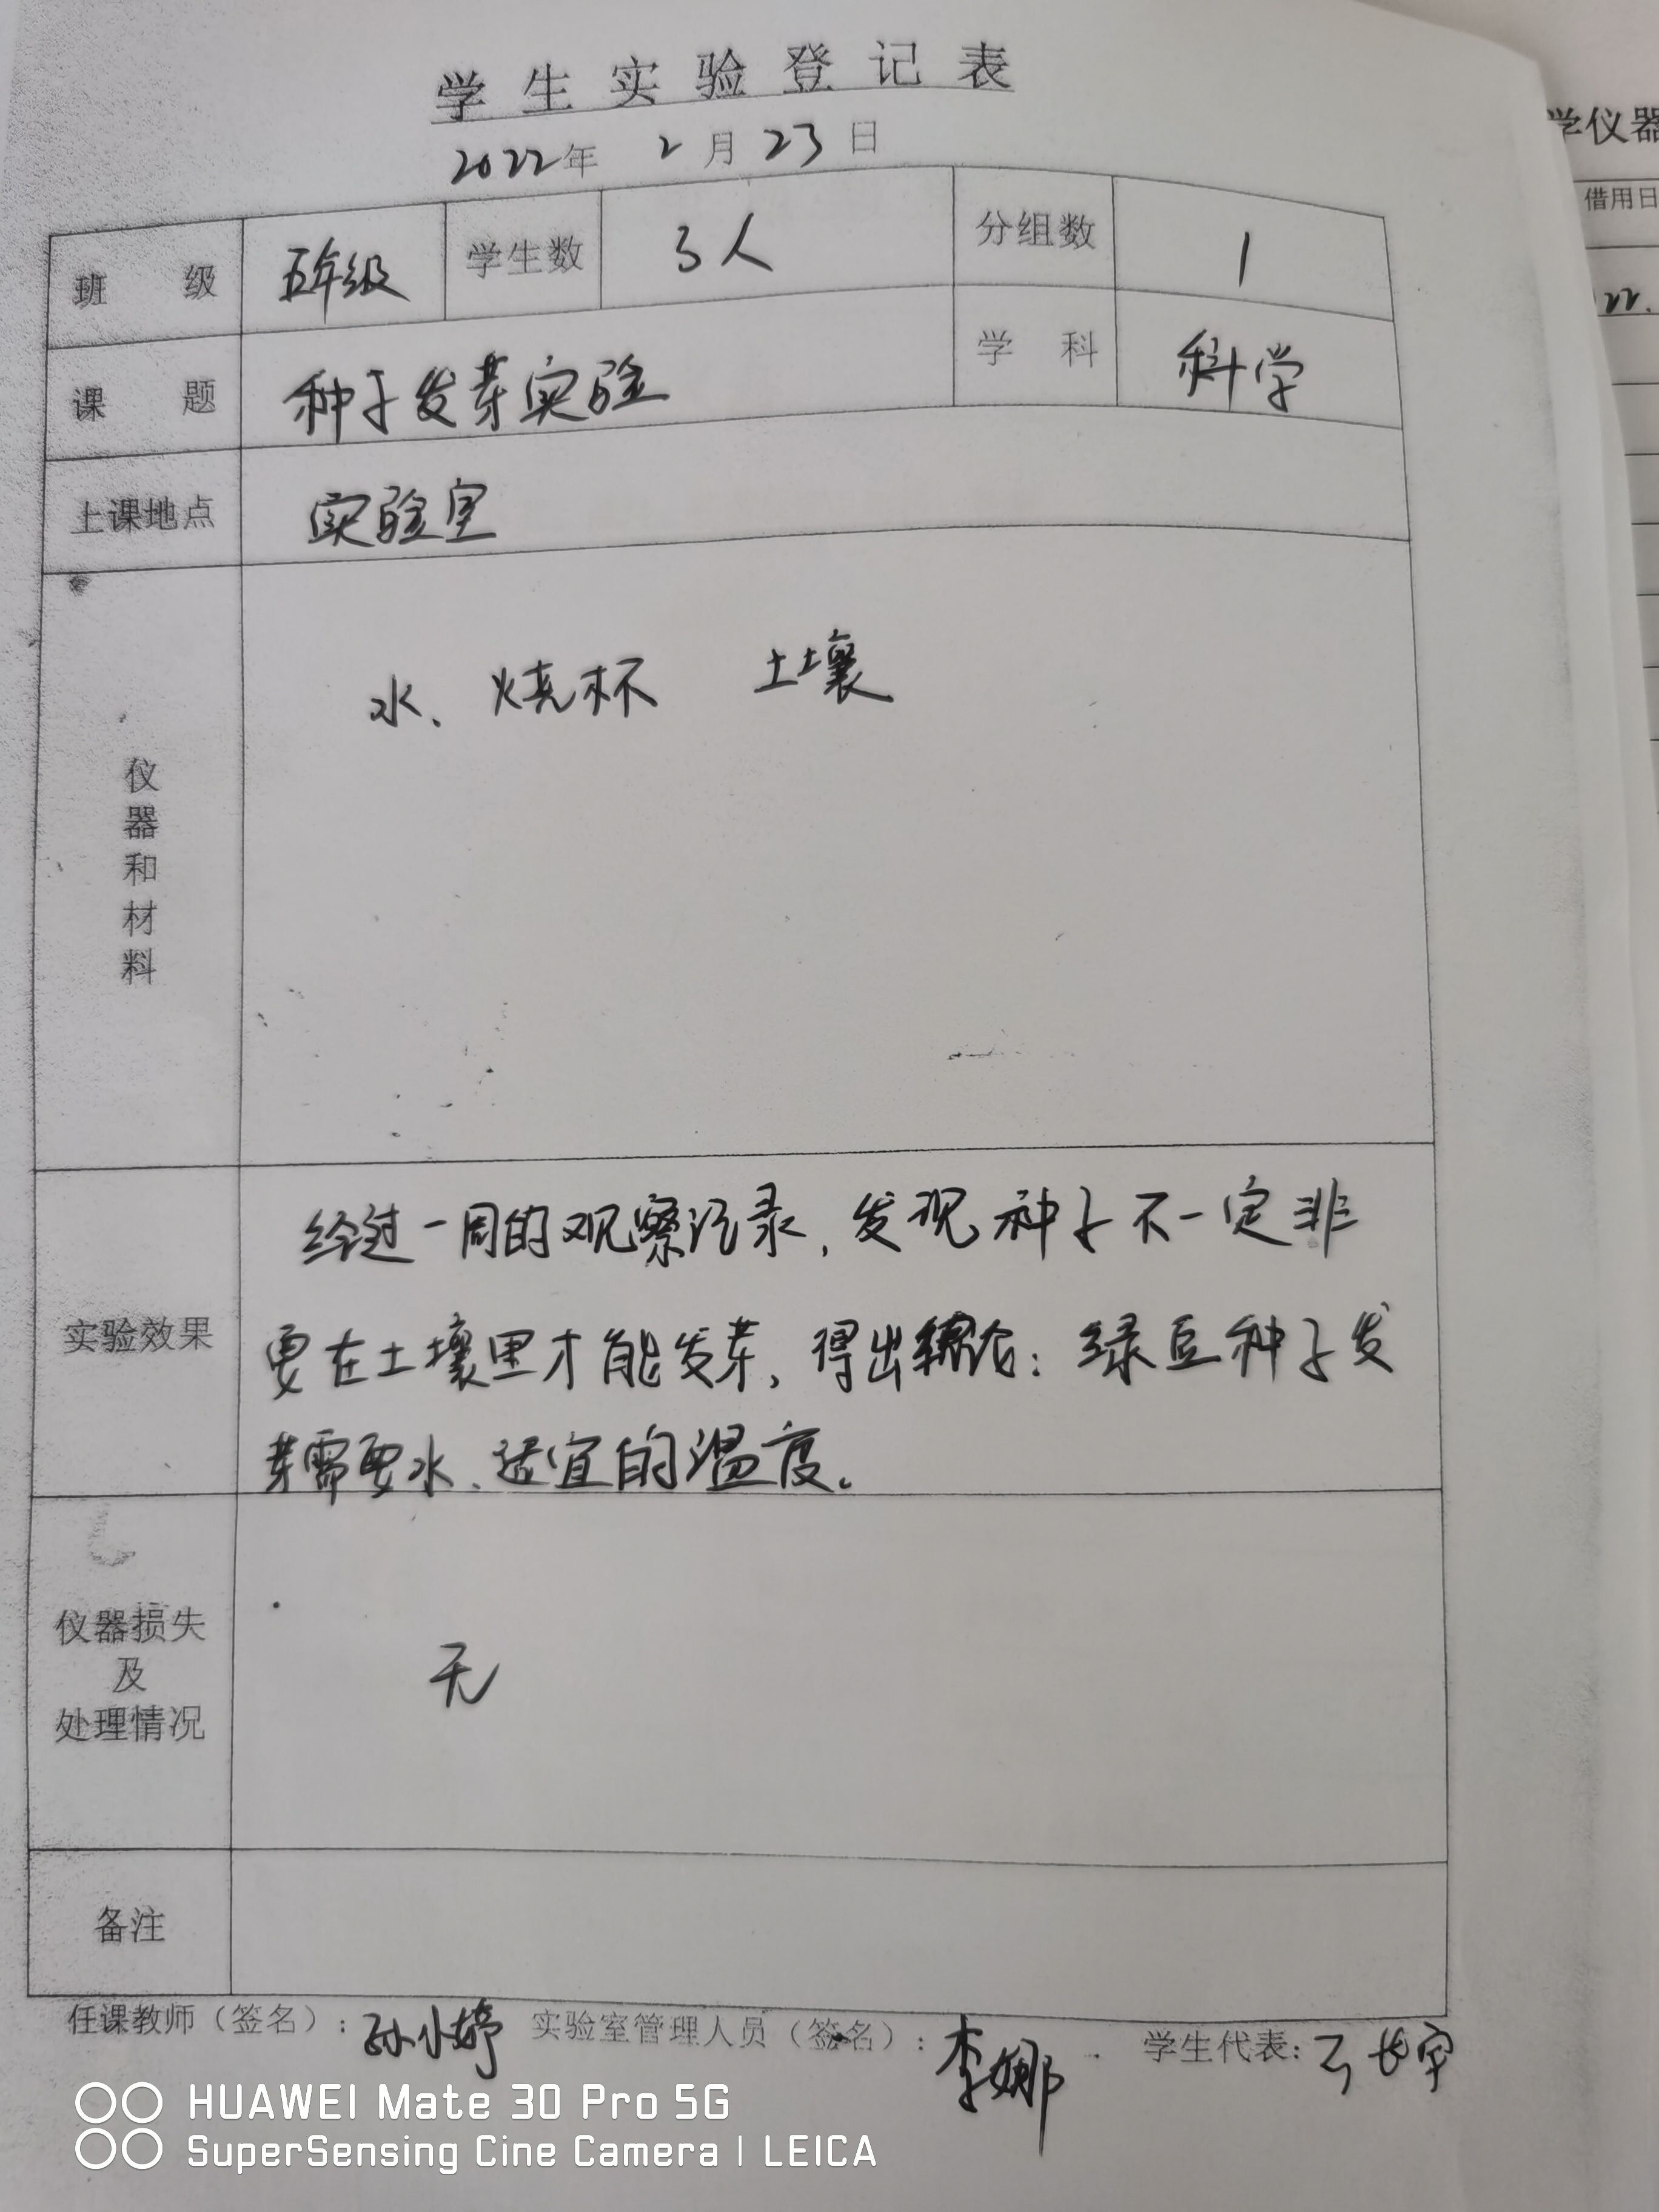 学生实验登记表
2022年 2月23日
班 级 五年级 学生数 3人 分组数 1
课 题 种子发芽实验 学 科 科学
上课地点 实验室
仪器和材料 水、烧杯 土壤
经过一周的观察记录,发现种子不一定非
实验效果 要在土壤里才能发芽,得出结论:绿豆种子发
芽需要水、适宜的温度。
仪器损失
及
处理情况
无
备注
任课教师(签名):孙小婷 实验室管理人员(签名):李娜 学生代表:
学仪器
借用日
22.
HUAWEI Mate 30 Pro 5G
SuperSensing Cine Camera | LEICA